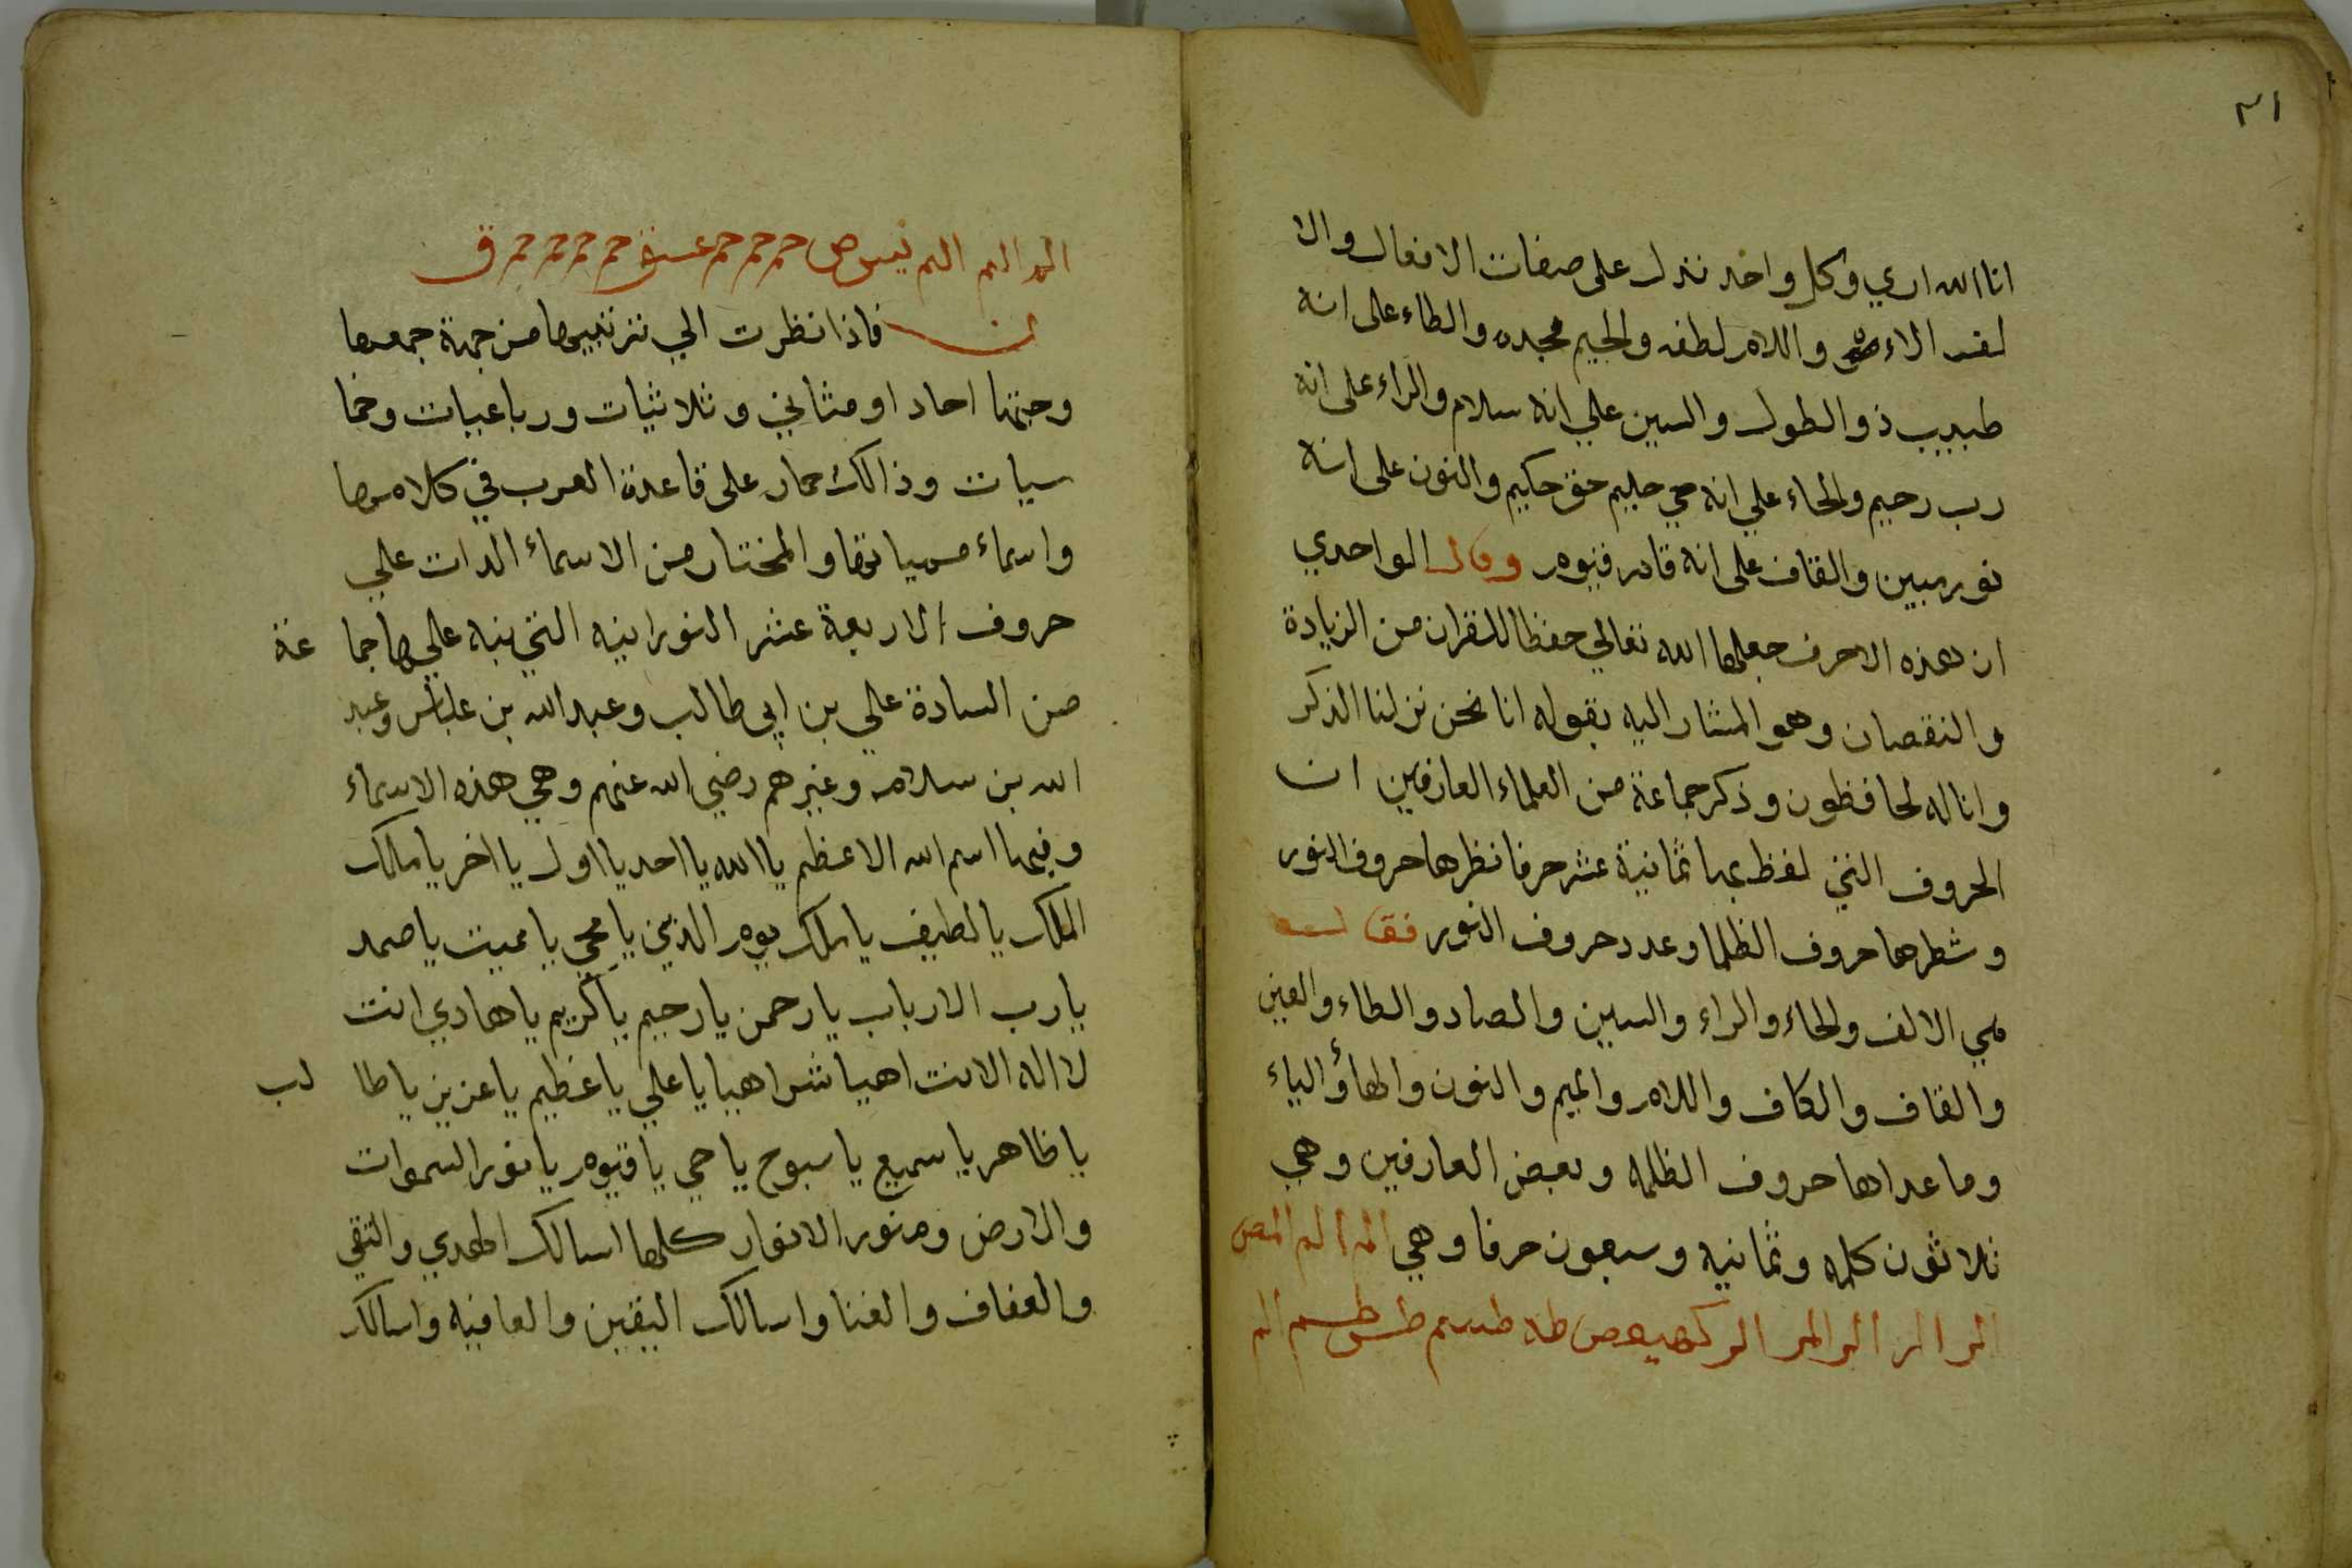 ٣١
انا الله اري وكل واحد تدل على صفات الافعال والا
لف الاءه واللام لطفه والجيم مجده والطاء على انه
طبيب ذو الطول والسين علي انه سلام والراء على انه
رب رحيم والحاء علي انه حي حليم حق حكيم والنون على انه
نور مبين والقاف على انه قادر قيوم وقال الواحدي
ان هذه الاحرف جعلها الله تعالي حفظا للقران من الزيادة
والنقصان وهو المشار اليه بقوله انا نحن نزلنا الذكر
وانا له لحافظون وذكر جماعة من العلماء العارفين ان
الحروف التي لفظ بها ثمانية عشر حرفا نظرها حروف النور
وشطرها حروف الظلما وعدد حروف النور فقال
هي الالف والحاء والراء والسين والصاد والطاء والعين
والقاف والكاف واللام والميم والنون والهاؤ الياء
وما عداها حروف الظلمه وبعض العارفين وهي
ثلاثون كلمه وثمانيه وسبعون حرفا وهي الم الم المص
الر الر الر المر الر كهيعص طه طسم طس طسم الم
الم الم الم يس ص حم حم حم عسق حم حم حم حم ق
ن فاذا نظرت الي ترتيبها من جهة جمعها
وجتها احاد او مثاني وثلاثيات ورباعيات وخما
سيات وذالك جار على قاعدة العرب في كلامها
واسماء مسياتها والمختار من الاسماء الدات علي
حروف الاربعة عشر النورانيه التي نبه عليها جما عة
من السادة علي بن ابي طالب وعبد الله بن عباس وعبد
الله بن سلام وغيرهم رضي الله عنهم وهي هذه الاسماء
وفيها اسم الله الاعظم يا الله يا احد يا اول يا اخر يا مالك
الملك يا لطيف يا ملك يوم الدين يا محي يا مميت يا صمد
يا رب الارباب يا رحمن يا رحيم يا كريم يا هادي انت
لا اله الا انت اهيا شراهيا يا علي يا عظيم يا عزيز يا طا لب
يا ظاهر يا سميع يا سبوح يا حي يا قيوم يا نور السموات
والارض ومنور الانوار كلها اسالك الهدي والتقي
والعفاف والغنا واسالك اليقين والعافيه واسالك